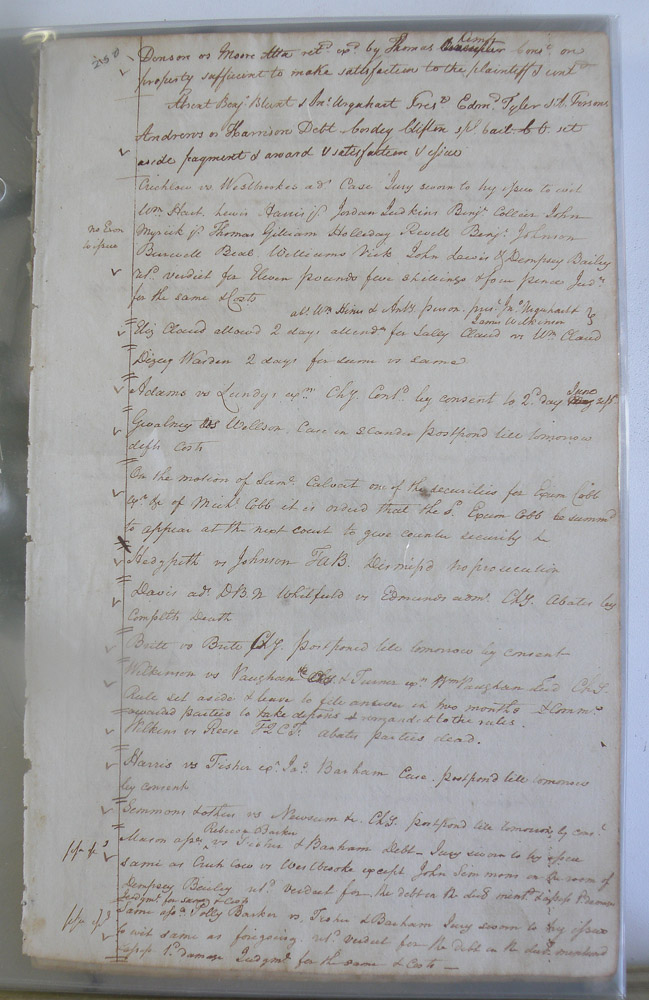 250
Denson vs Moore Atta retd exd by Thomas Const on
property sufficient to make satisfaction to the plaintiff & contd
Absent Benja Blunt & Jno Urquhart Prest Edmd Tyler & A. Parsons
Andrews vs Harrison Debt Cordey Clifton set
aside payment & award & satisfaction & issue
Crichlow vs Westbrookes ads Case Jury sworn to try issue to wit
Wm Hart Lewis Harris jr Jordan Judkins Benja Collier John
no Exon
to issue
Myrick jr Thomas Gilliam Holleday Revell Benja Johnson
Burwell Beal Williams Nick John Davis & Dempsey Bailey
retd verdict for Eleven pounds five shillings & four pence Judt
for the same & Costs
abst Wm Hines & Anty person. prest Jno Urquhart &
James Wilkinson
Eliz Claud allowd 2 days attendce for Sally Claud vs Wm Claud
Dizey Warden 2 days for same vs same
Adams vs Lundys exrs Chy. Contd by consent to 2d day June
Gwalney vs Wellson. Case in Slander postpond till tomorrow
defts Costs
On the motion of Saml Calvert one of the securities for Exum Cobb
exr &c of Michl Cobb it is orderd that the sd Exum Cobb be summd
to appear at the next court to give counter security &c
Hedgpeth vs Johnson TAB. Dismissd no prosecution
Davis ads DBN Whitfield vs Edmunds admr Chy. Abates by
Complts Death
Brite vs Brite Chy. postponed till tomorrow by consent
Wilkinson vs Vaughan & Turner exrs Wm Vaughan Decd Chy.
Rule set aside & leave to file answer in two months & Comms
awarded parties to take depons & remanded to the rules.
Wilkins vs Reese abates parties dead.
Harris vs Fisher exr Jas Barham Case. postpond till tomorrow
by consent
Semmons & others vs Newsum &c. Chy. postpond till tomorrow by const
Rebecca Barker
Mason asse vs Fisher & Barham Debt Jury sworn to try issue
same as Crichlow vs Westbrooke except John Simmons in the room of
Dempsey Bailey retd verdict for the debt in the decl mentd & assess 1d damage
Judgmt for same & Costs
Same asse Polly Barker vs. Fisher & Barham Jury sworn to try issue
to wit same as foregoing retd verdict for the debt in the decl mentiond
assess 1d damage Judgmt for the same & Costs